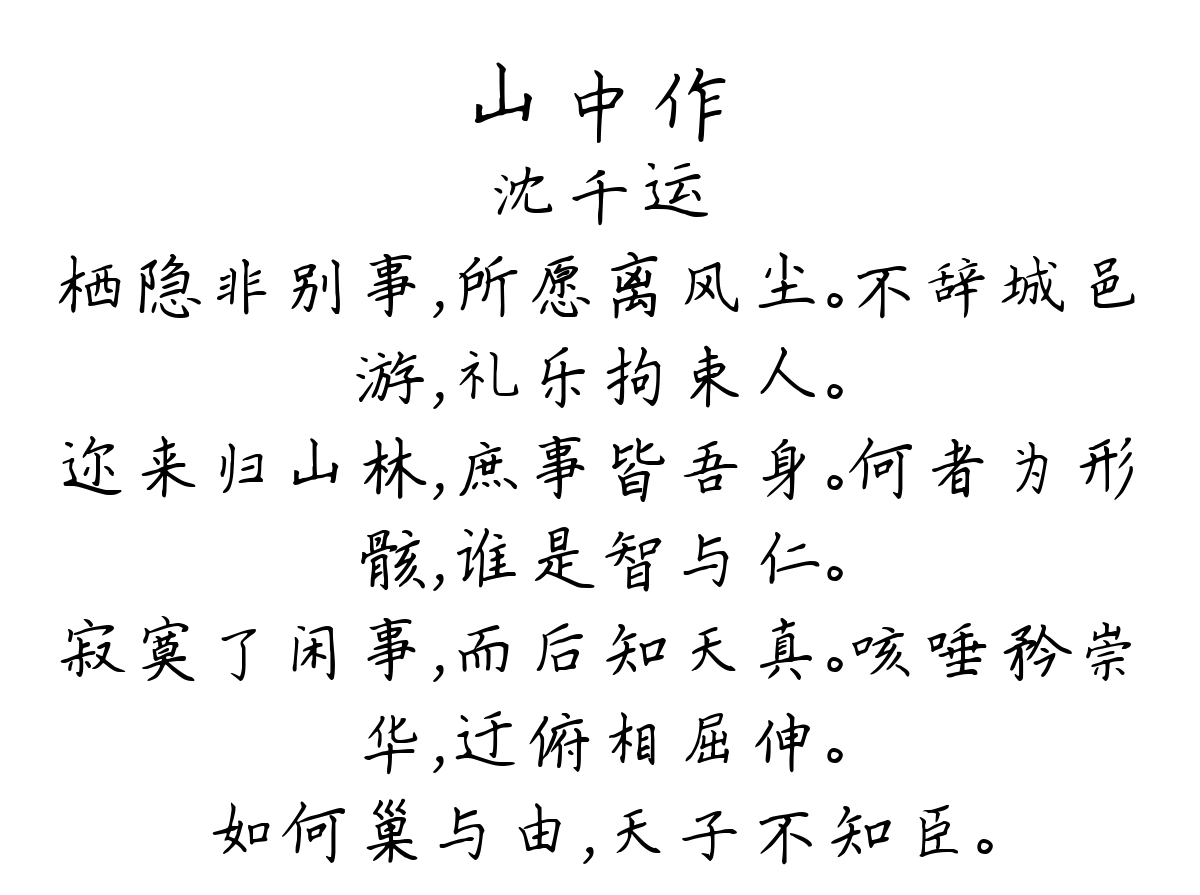 山中作
沈千运
栖隐非别事,所愿离风尘。不辞城邑
游,礼乐拘束人。
迩来归山林,庶事皆吾身。何者为形
骸,谁是智与仁。
寂寞了闲事,而后知天真。咳唾矜崇
华,迂俯相屈伸。
如何巢与由,天子不知臣。